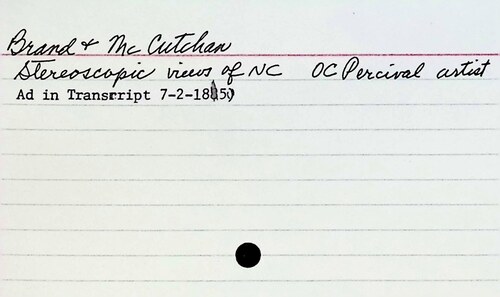 Brand & McCutchan
Stereoscopic views of NC OC Percival artist
Ad in Transcript 7-2-